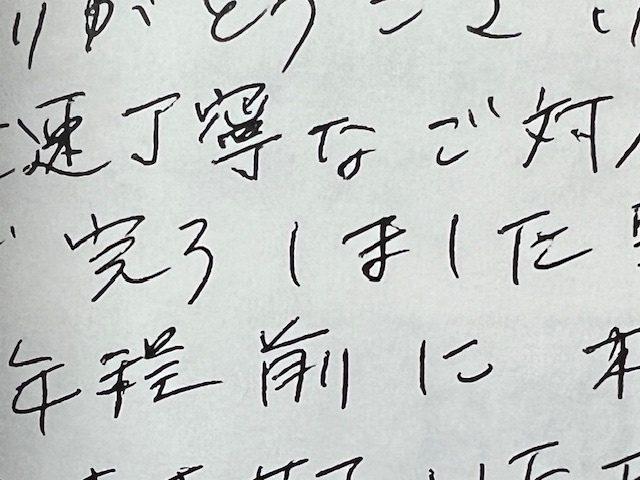 りがとうご
速丁寧なご対
完了しました
年程前に本